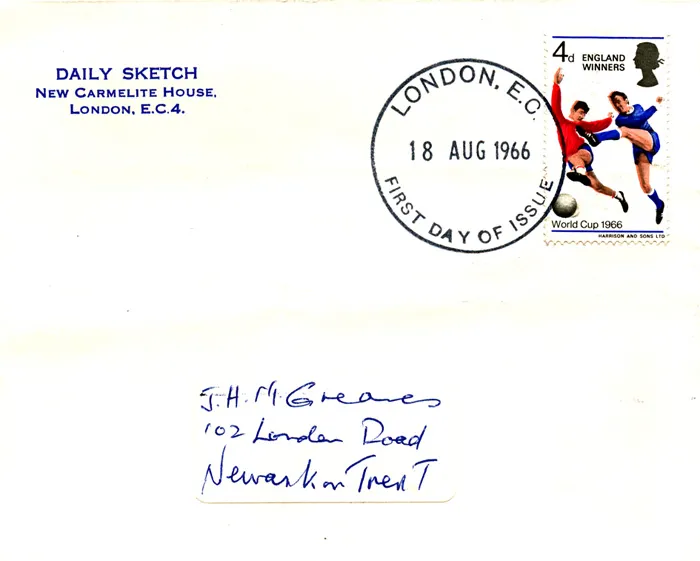 DAILY SKETCH
NEW CARMELITE HOUSE,
LONDON, E.C.4.
LONDON, E.C.
18 AUG 1966
FIRST DAY OF ISSUE
4d ENGLAND
WINNERS
World Cup 1966
HARRISON AND SONS LTD
J.H.M. Greaves
102 London Road
Newark on Trent